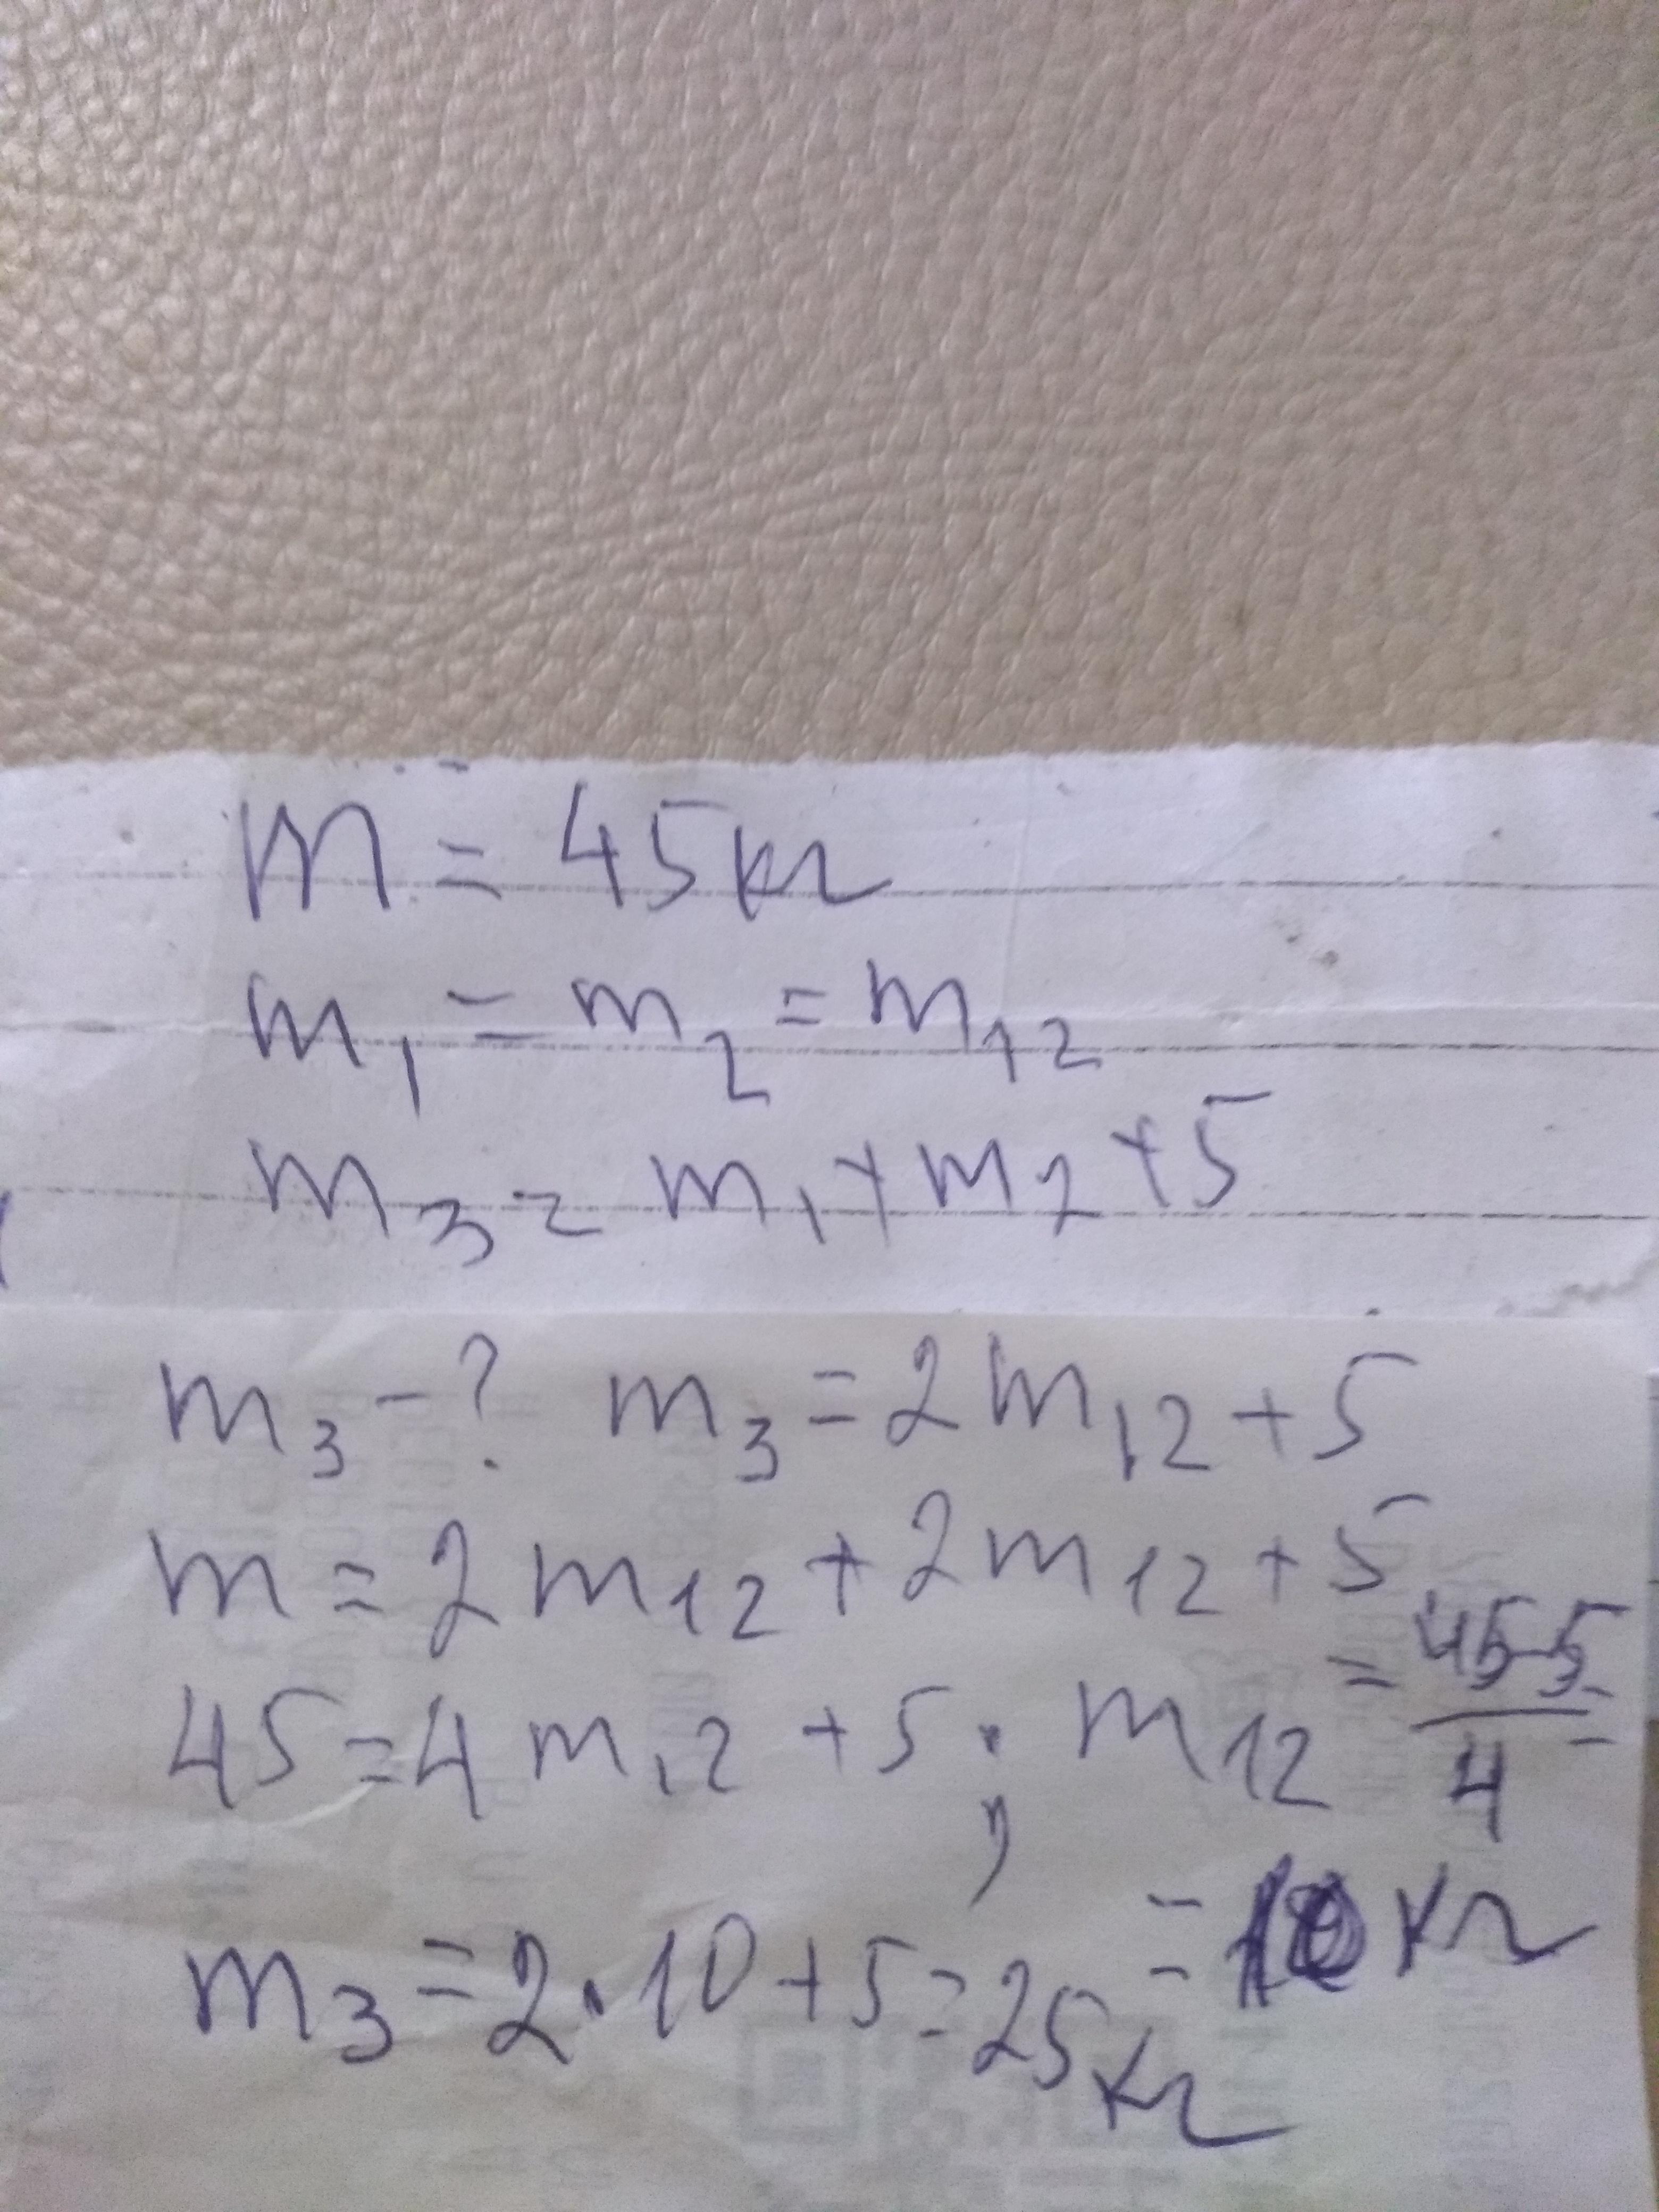 m = 45 кг
m₁ = m₂ = m₁₂
m₃ = m₁ + m₂ + 5
m₃ - ? m₃ = 2m₁₂ + 5
m = 2m₁₂ + 2m₁₂ + 5
45 = 4m₁₂ + 5 ; m₁₂ = (45-5)/4 =
= 10 кг
m₃ = 2·10 + 5 = 25 кг